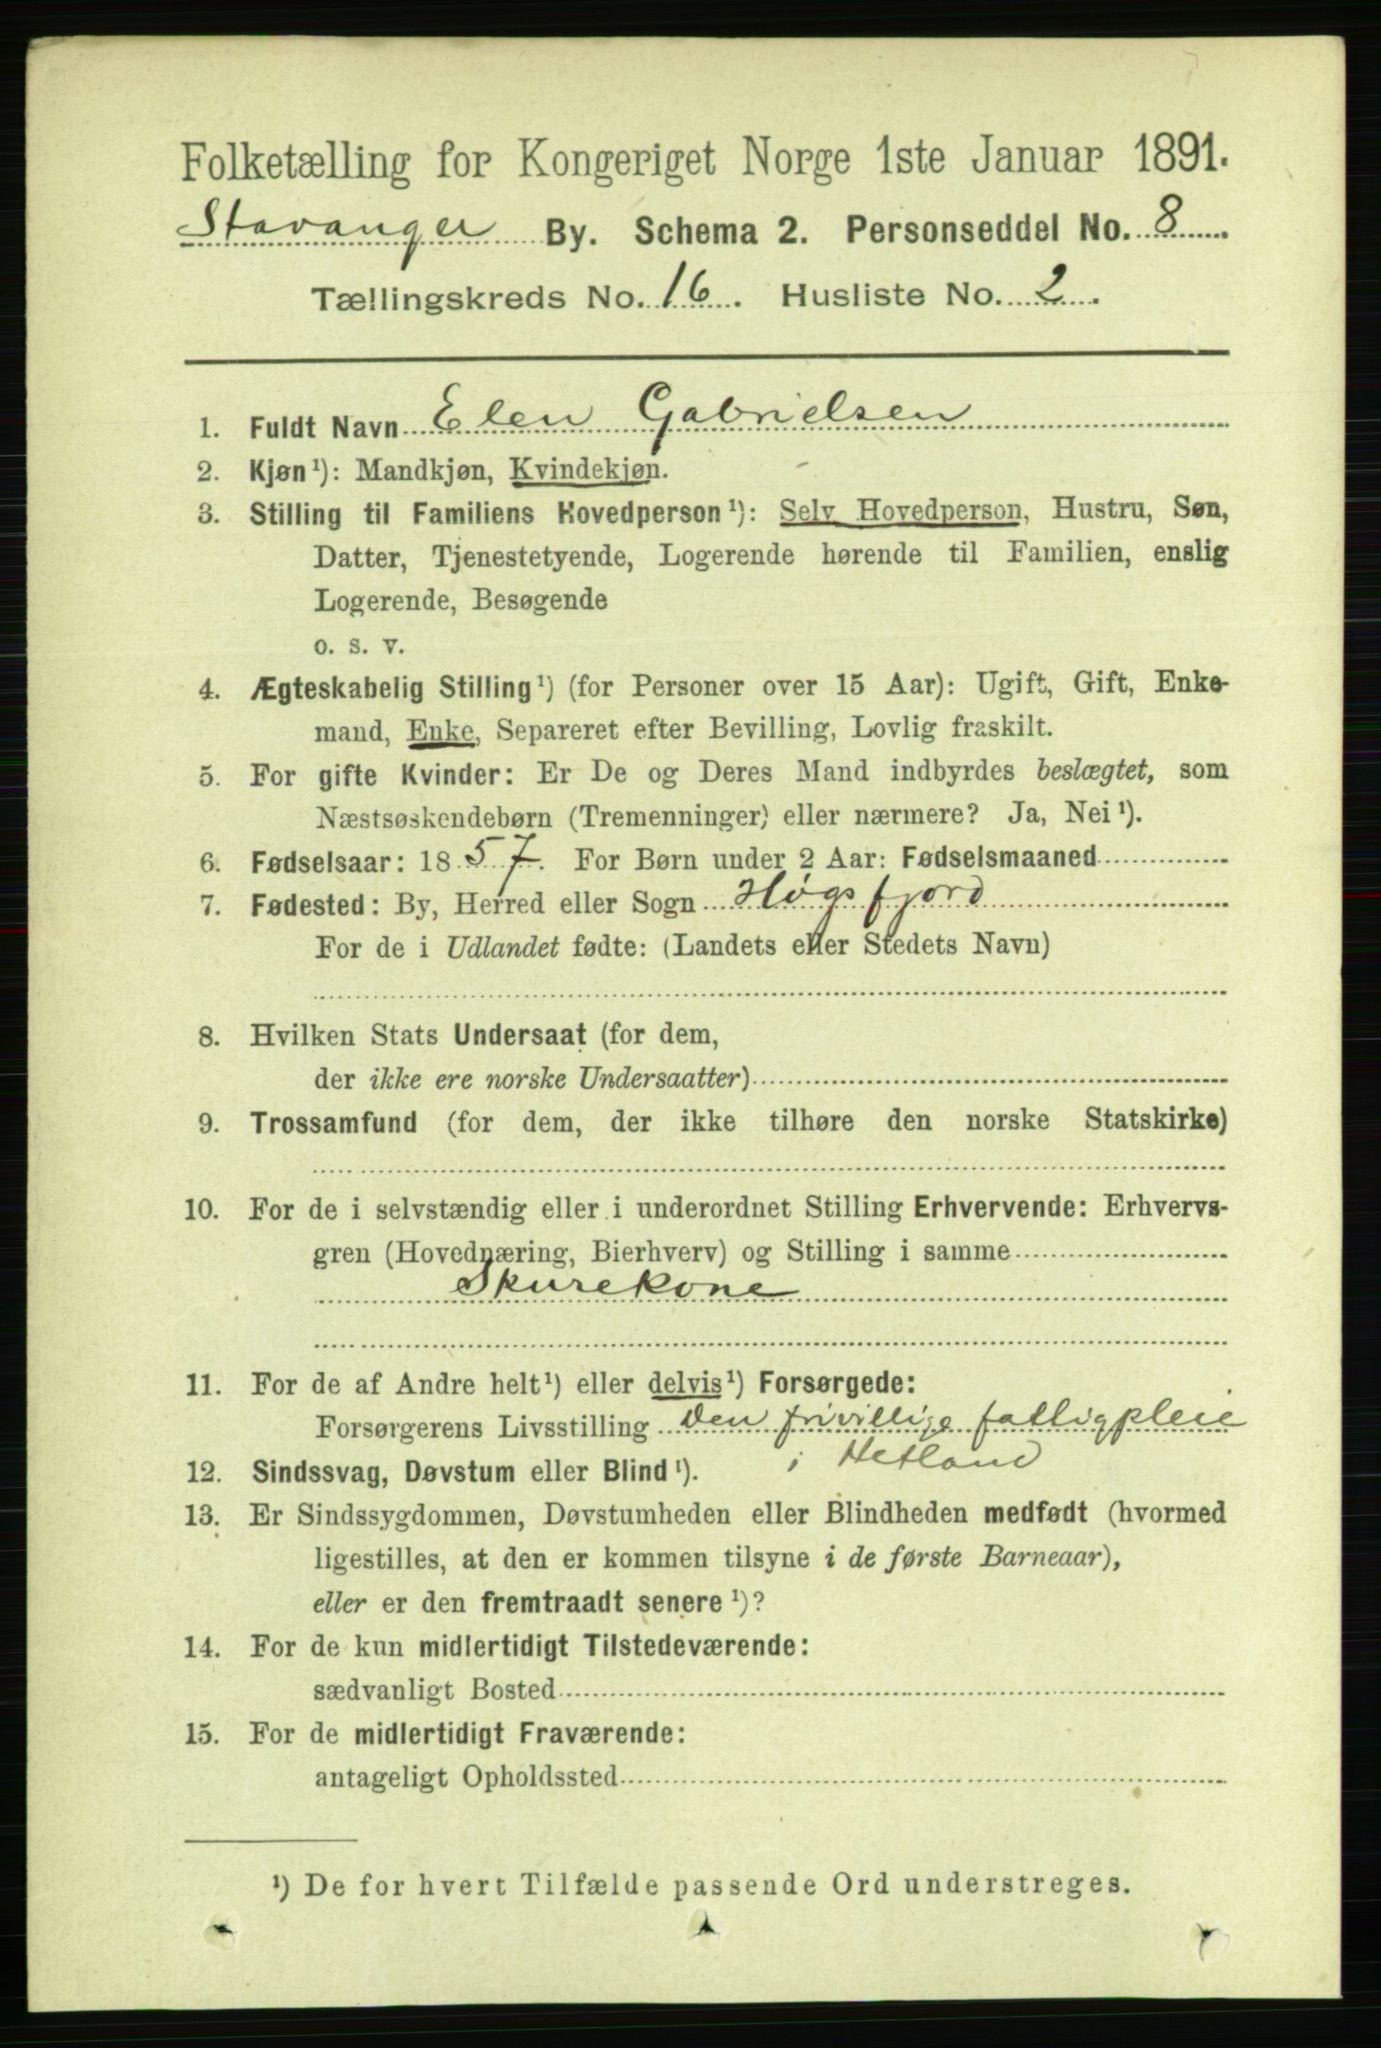 Folketælling for Kongeriget Norge 1ste Januar 1891.
Stavanger By. Schema 2. Personseddel No. 8
Tællingskreds No. 16. Husliste No. 2.
1. Fuldt Navn Elen Gabrielsen
2. Kjøn¹): Mandkjøn, Kvindekjøn.
3. Stilling til Familiens Hovedperson¹): Selv Hovedperson, Hustru, Søn,
Datter, Tjenestetyende, Logerende hørende til Familien, enslig
Logerende, Besøgende
o. s. v.
4. Ægteskabelig Stilling¹) (for Personer over 15 Aar): Ugift, Gift, Enke-
mand, Enke, Separeret efter Bevilling, Lovlig fraskilt.
5. For gifte Kvinder: Er De og Deres Mand indbyrdes beslægtet, som
Næstsøskendebørn (Tremenninger) eller nærmere? Ja, Nei¹).
6. Fødselsaar: 1857. For Børn under 2 Aar: Fødselsmaaned
7. Fødested: By, Herred eller Sogn Høgsfjord
For de i Udlandet fødte: (Landets eller Stedets Navn)
8. Hvilken Stats Undersaat (for dem,
der ikke ere norske Undersaatter)
9. Trossamfund (for dem, der ikke tilhøre den norske Statskirke)
10. For de i selvstændig eller i underordnet Stilling Erhvervende: Erhvervs-
gren (Hovednæring, Bierhverv) og Stilling i samme
Skurekone
11. For de af Andre helt¹) eller delvis¹) Forsørgede:
Forsørgerens Livsstilling Den frivillige fattigpleie
i Hetland
12. Sindssvag, Døvstum eller Blind¹).
13. Er Sindssygdommen, Døvstumheden eller Blindheden medfødt (hvormed
ligestilles, at den er kommen tilsyne i de første Barneaar),
eller er den fremtraadt senere¹)?
14. For de kun midlertidigt Tilstedeværende:
sædvanligt Bosted
15. For de midlertidigt Fraværende:
antageligt Opholdssted
¹) De for hvert Tilfælde passende Ord understreges.